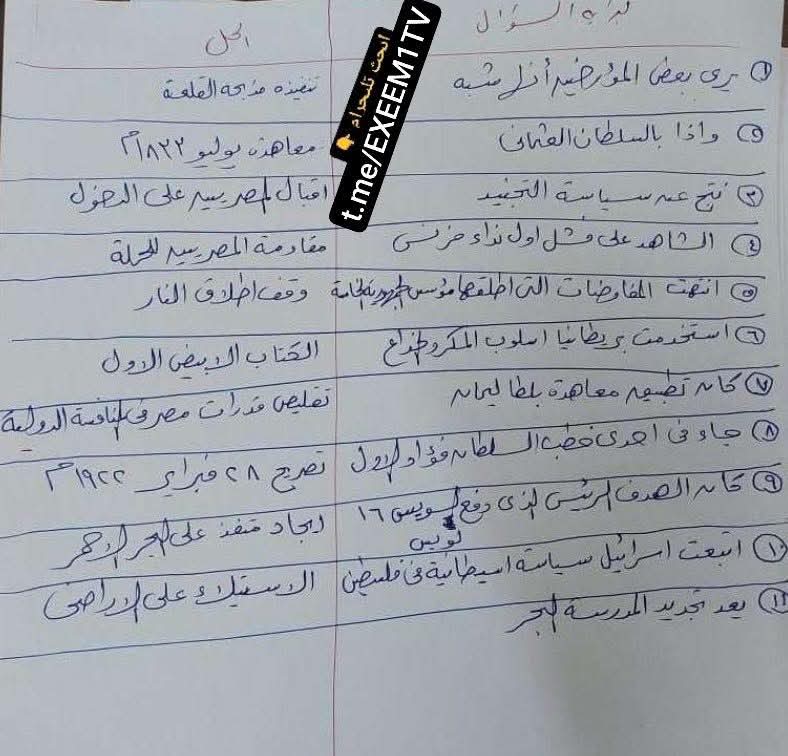 بداية السؤال	الحل
ابحث تلجرام 👇
t.me/EXEEM1TV
① يرى بعض المؤرخين أن ما شبه	تنفيذه مذبحة القلعة
② واذا بالسلطان العثمانى	معاهدة يوليو ١٨٣٣م
③ نتج عن سياسة التجنيد	اقبال المصريين على الدخول
④ الشاهد على فشل اول نداء فرنسى	مقاومة المصريين للحملة
⑤ انتهت المفاوضات التى اطلقها مؤسس الجمهورية الخامسة	وقف اطلاق النار
⑥ استخدمت بريطانيا اسلوب المكر والخداع	الكتاب الابيض الاول
⑦ كان تطبيق معاهدة بلطا ليمان	تقليص قدرات مصر فى المنافسة الدولية
⑧ جاء فى احدى خطب السلطان فؤاد الاول	تصريح ٢٨ فبراير ١٩٢٢م
⑨ كان الهدف الرئيس الذى دفع لويس ١٦	ايجاد منفذ على البحر الاحمر
لويس
⑩ اتبعت اسرائيل سياسة اسيطانية فى فلسطين	الاستيلاء على الاراضى
⑪ يعد تجديد المدرسة البحر